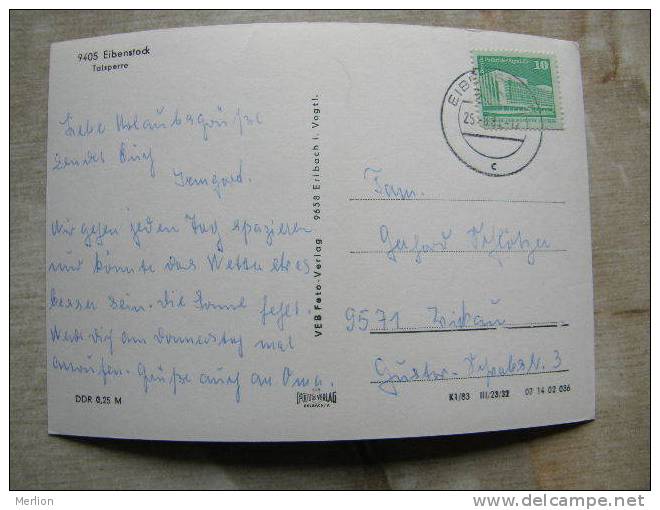 9405 Eibenstock
Talsperre
Liebe Urlaubsgrüße
sendet Euch
Irmgard.
Wir gehen jeden Tag spazieren
nur könnte das Wetter etws
besser sein. Die Sonne fehlt.
Werd dich am Donnerstag mal
anrufen. Grüße auch an Oma.
DDR 0,25 M
VEB Foto-Verlag 9658 Erlbach i. Vogtl.
FOTO VERLAG
ERLBACH
10
EIBE
c
Fam.
Gerhard Schlötzer
9571 Zwickau
Gustav- 3
K1/83 III/23/32 07 14 02 036
Merlion
www.delcampe.net